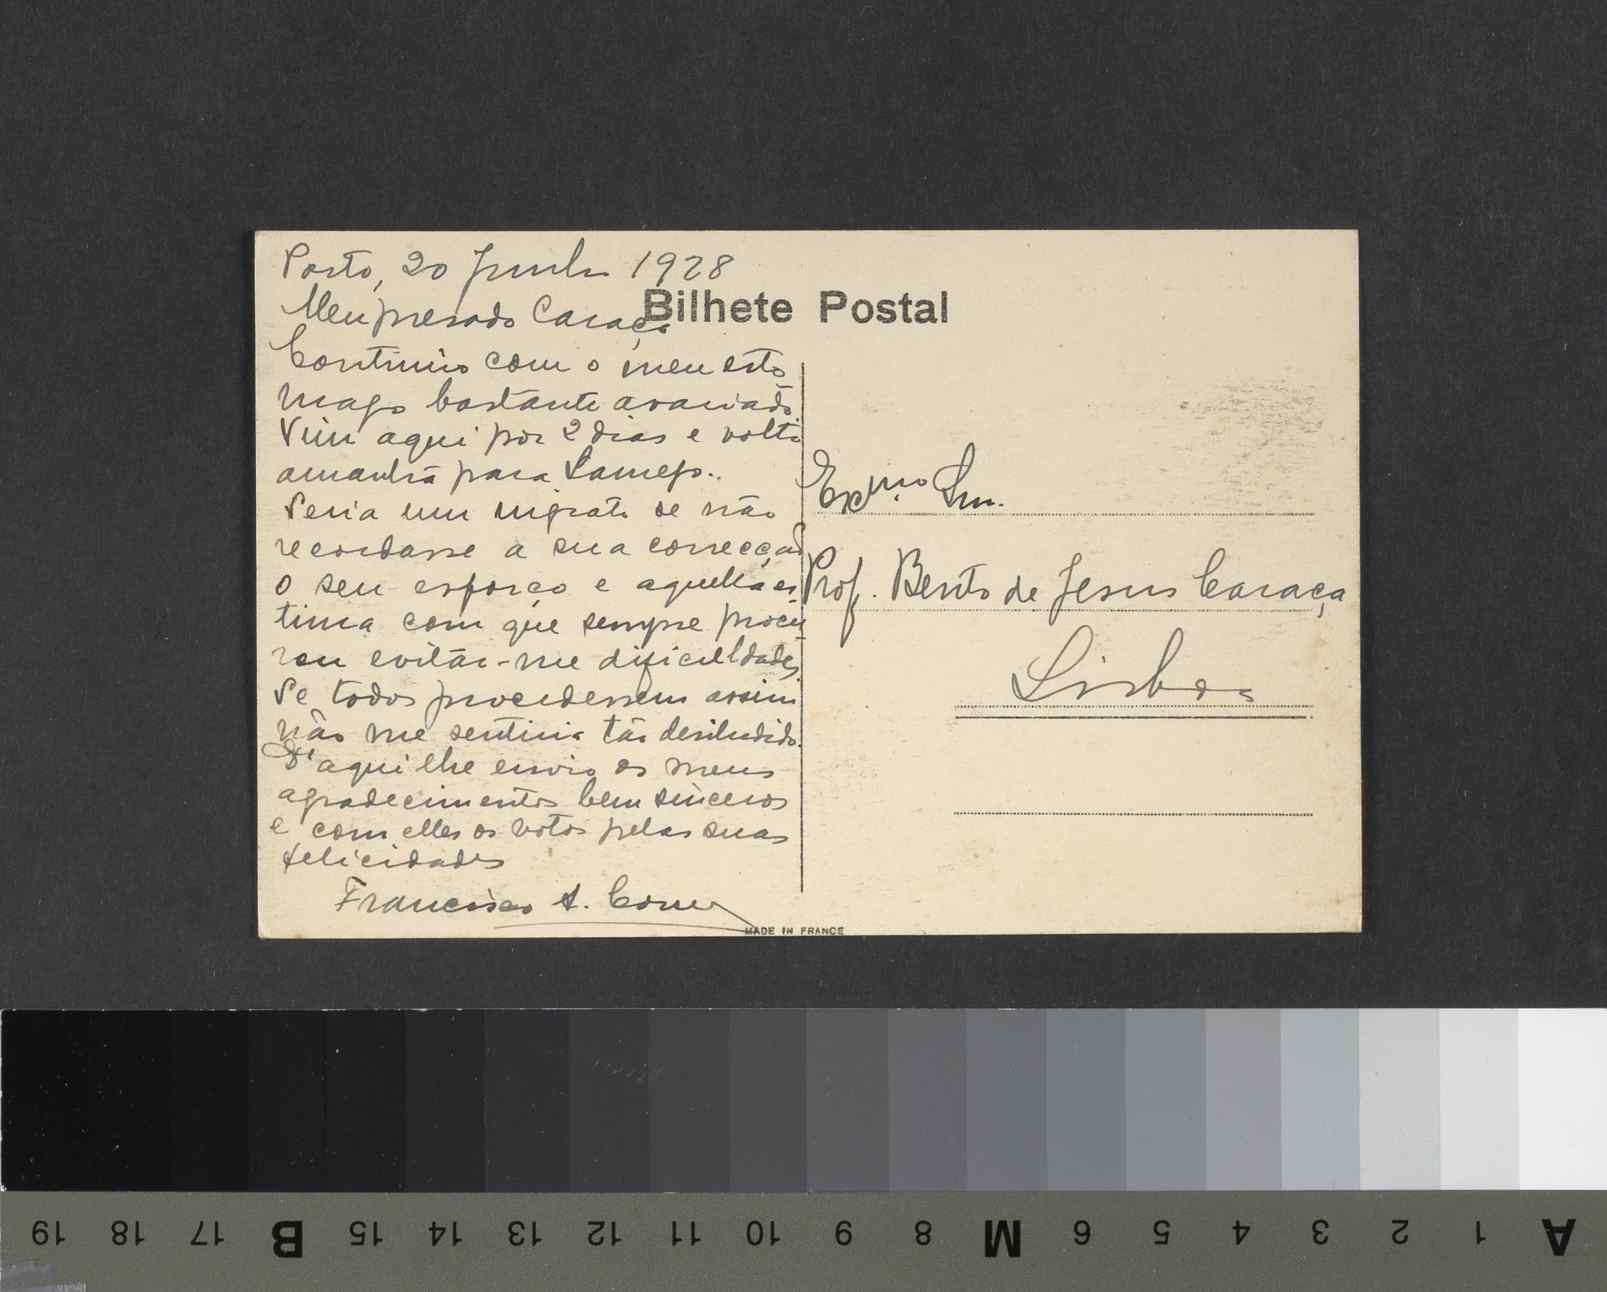 Porto, 20 Junho 1928
Bilhete Postal
Meu presado Caraça
Continuo com o meu esto
mago bastante avariado.
Vim aqui por 2 dias e volto
amanhã para Lamego.
Seria um ingrato se não
recordasse a sua correcção
o seu esforço e aquella es
tima com que sempre procu
rou evitar-me dificuldades
Se todos procedessem assim
não me sentiria tão desiludido.
D'aqui lhe envio os meus
agradecimentos bem sinceros
e com elles os votos pelas suas
felicidades
Francisco A.
Exmo Snr.
Prof. Bento de Jesus Caraça
Lisboa
MADE IN FRANCE
19 18 17 B 15 14 13 12 11 10 9 8 M 6 5 4 3 2 1 A